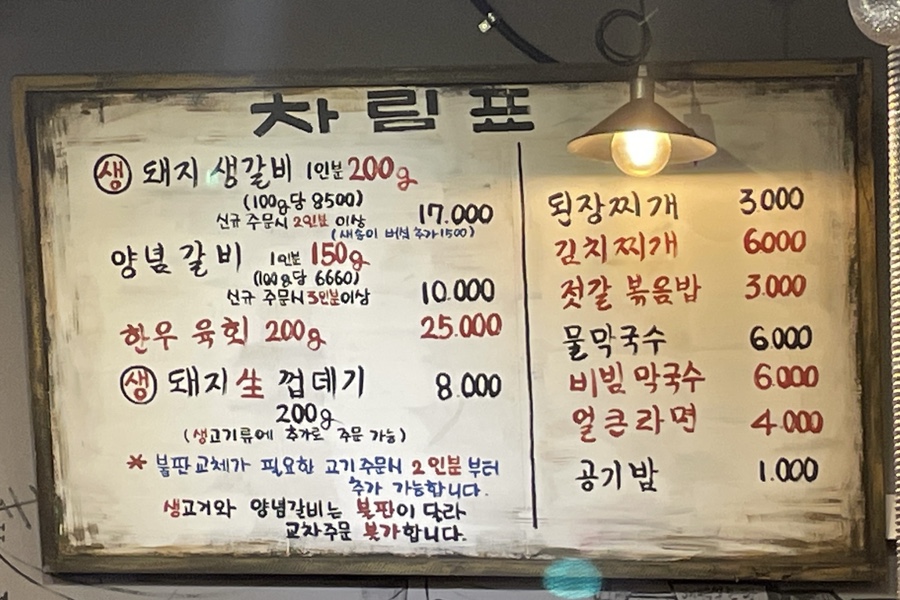 차림표
생 돼지 생갈비 1인분 200g
(100g당 8500)
신규 주문시 2인분 이상 17.000
(새송이 버섯 추가 1500)
양념갈비 1인분 150g
(100g당 6660)
신규 주문시 3인분이상 10.000
한우 육회 200g 25.000
생 돼지生껍데기 8.000
200g
(생고기류에 추가로 주문 가능)
* 불판교체가 필요한 고기주문시 2인분부터
추가 가능합니다.
생고기와 양념갈비는 불판이 달라
교차주문 불가합니다.
된장찌개 3.000
김치찌개 6000
젓갈 볶음밥 3.000
물막국수 6.000
비빔막국수 6.000
얼큰라면 4.000
공기밥 1.000